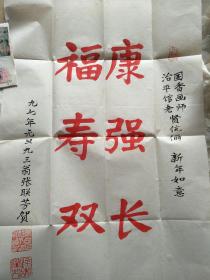 国香画师
治平信老贤伉俪 新年如意
康强长
福寿双
九七年元旦九三翁张联芳贺